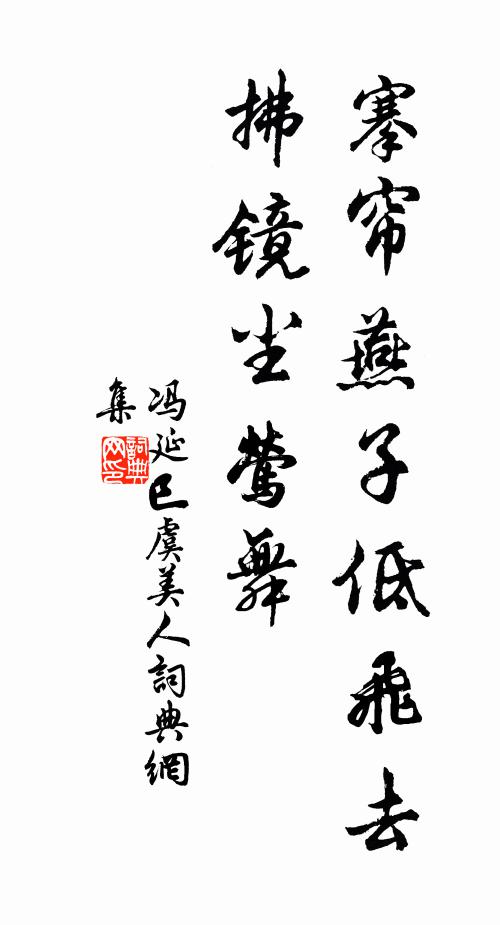 搴帘燕子低飞去
拂镜尘莺舞
冯延巳虞美人詞典網
集
詞典网印